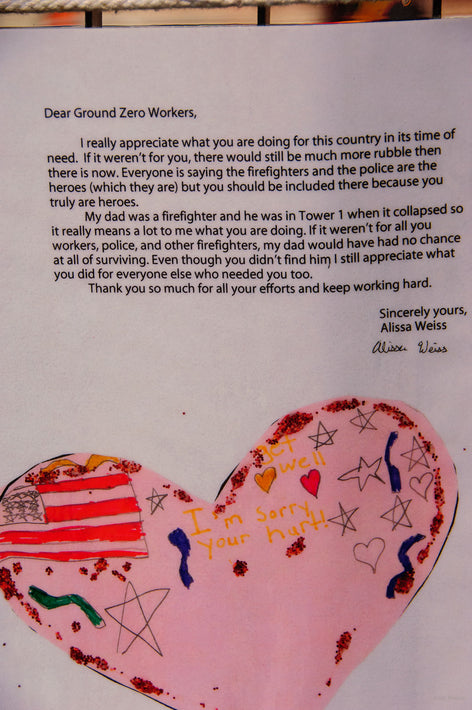 Dear Ground Zero Workers,
I really appreciate what you are doing for this country in its time of
need. If it weren't for you, there would still be much more rubble then
there is now. Everyone is saying the firefighters and the police are the
heroes (which they are) but you should be included there because you
truly are heroes.
My dad was a firefighter and he was in Tower 1 when it collapsed so
it really means a lot to me what you are doing. If it weren't for all you
workers, police, and other firefighters, my dad would have had no chance
at all of surviving. Even though you didn't find him, I still appreciate what
you did for everyone else who needed you too.
Thank you so much for all your efforts and keep working hard.
Sincerely yours,
Alissa Weiss
Alissa Weiss
get
well
I'm sorry
your hart!